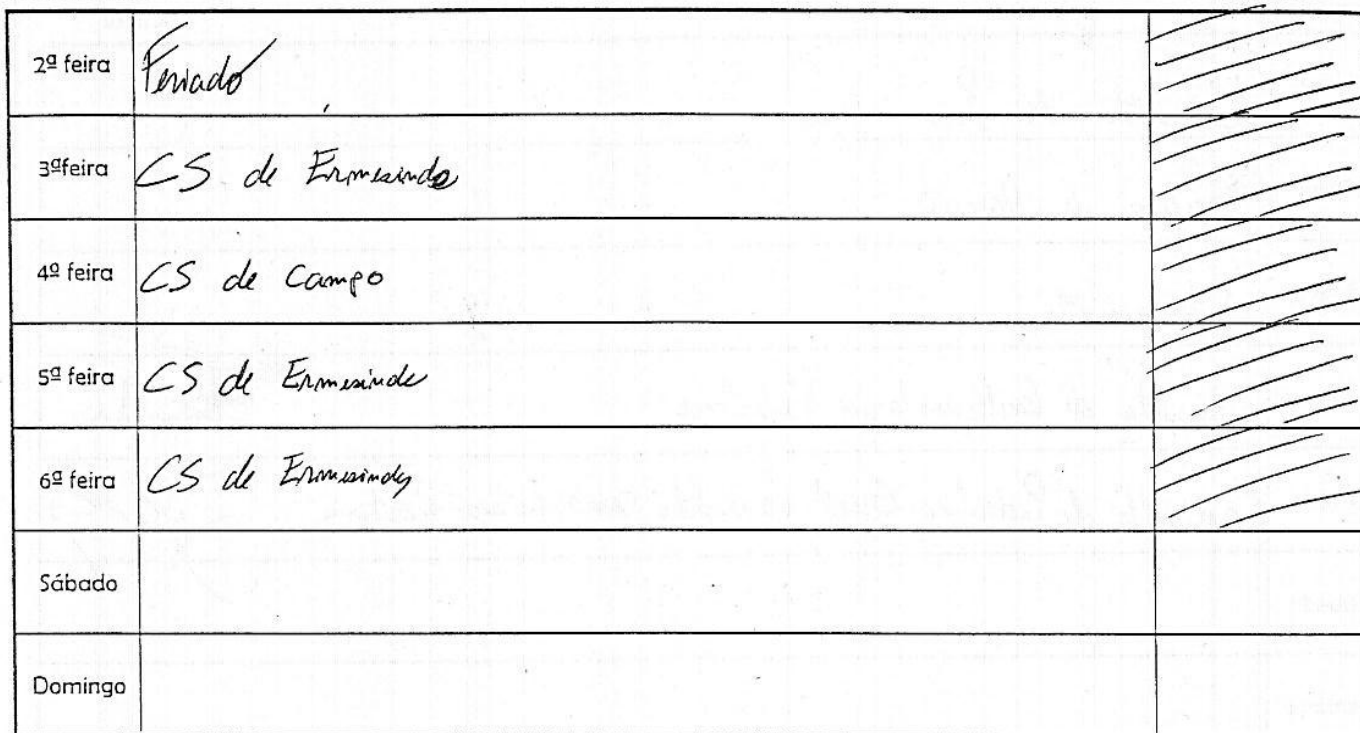 2ª feira Feriado
3ªfeira CS de Ermesinde
4ª feira CS de Campo
5ª feira CS de Ermesinde
6ª feira CS de Ermesinde
Sábado
Domingo